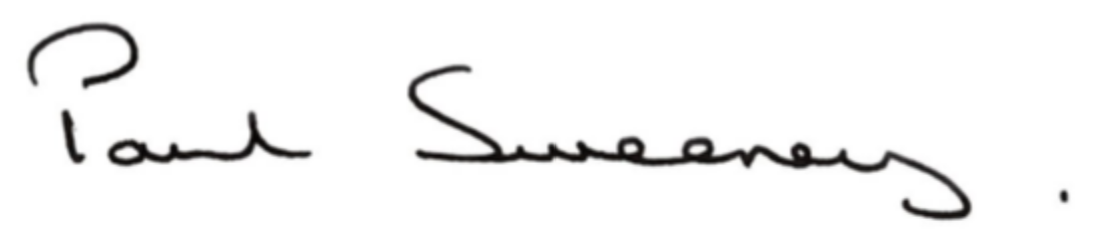 Paul Sweeney.